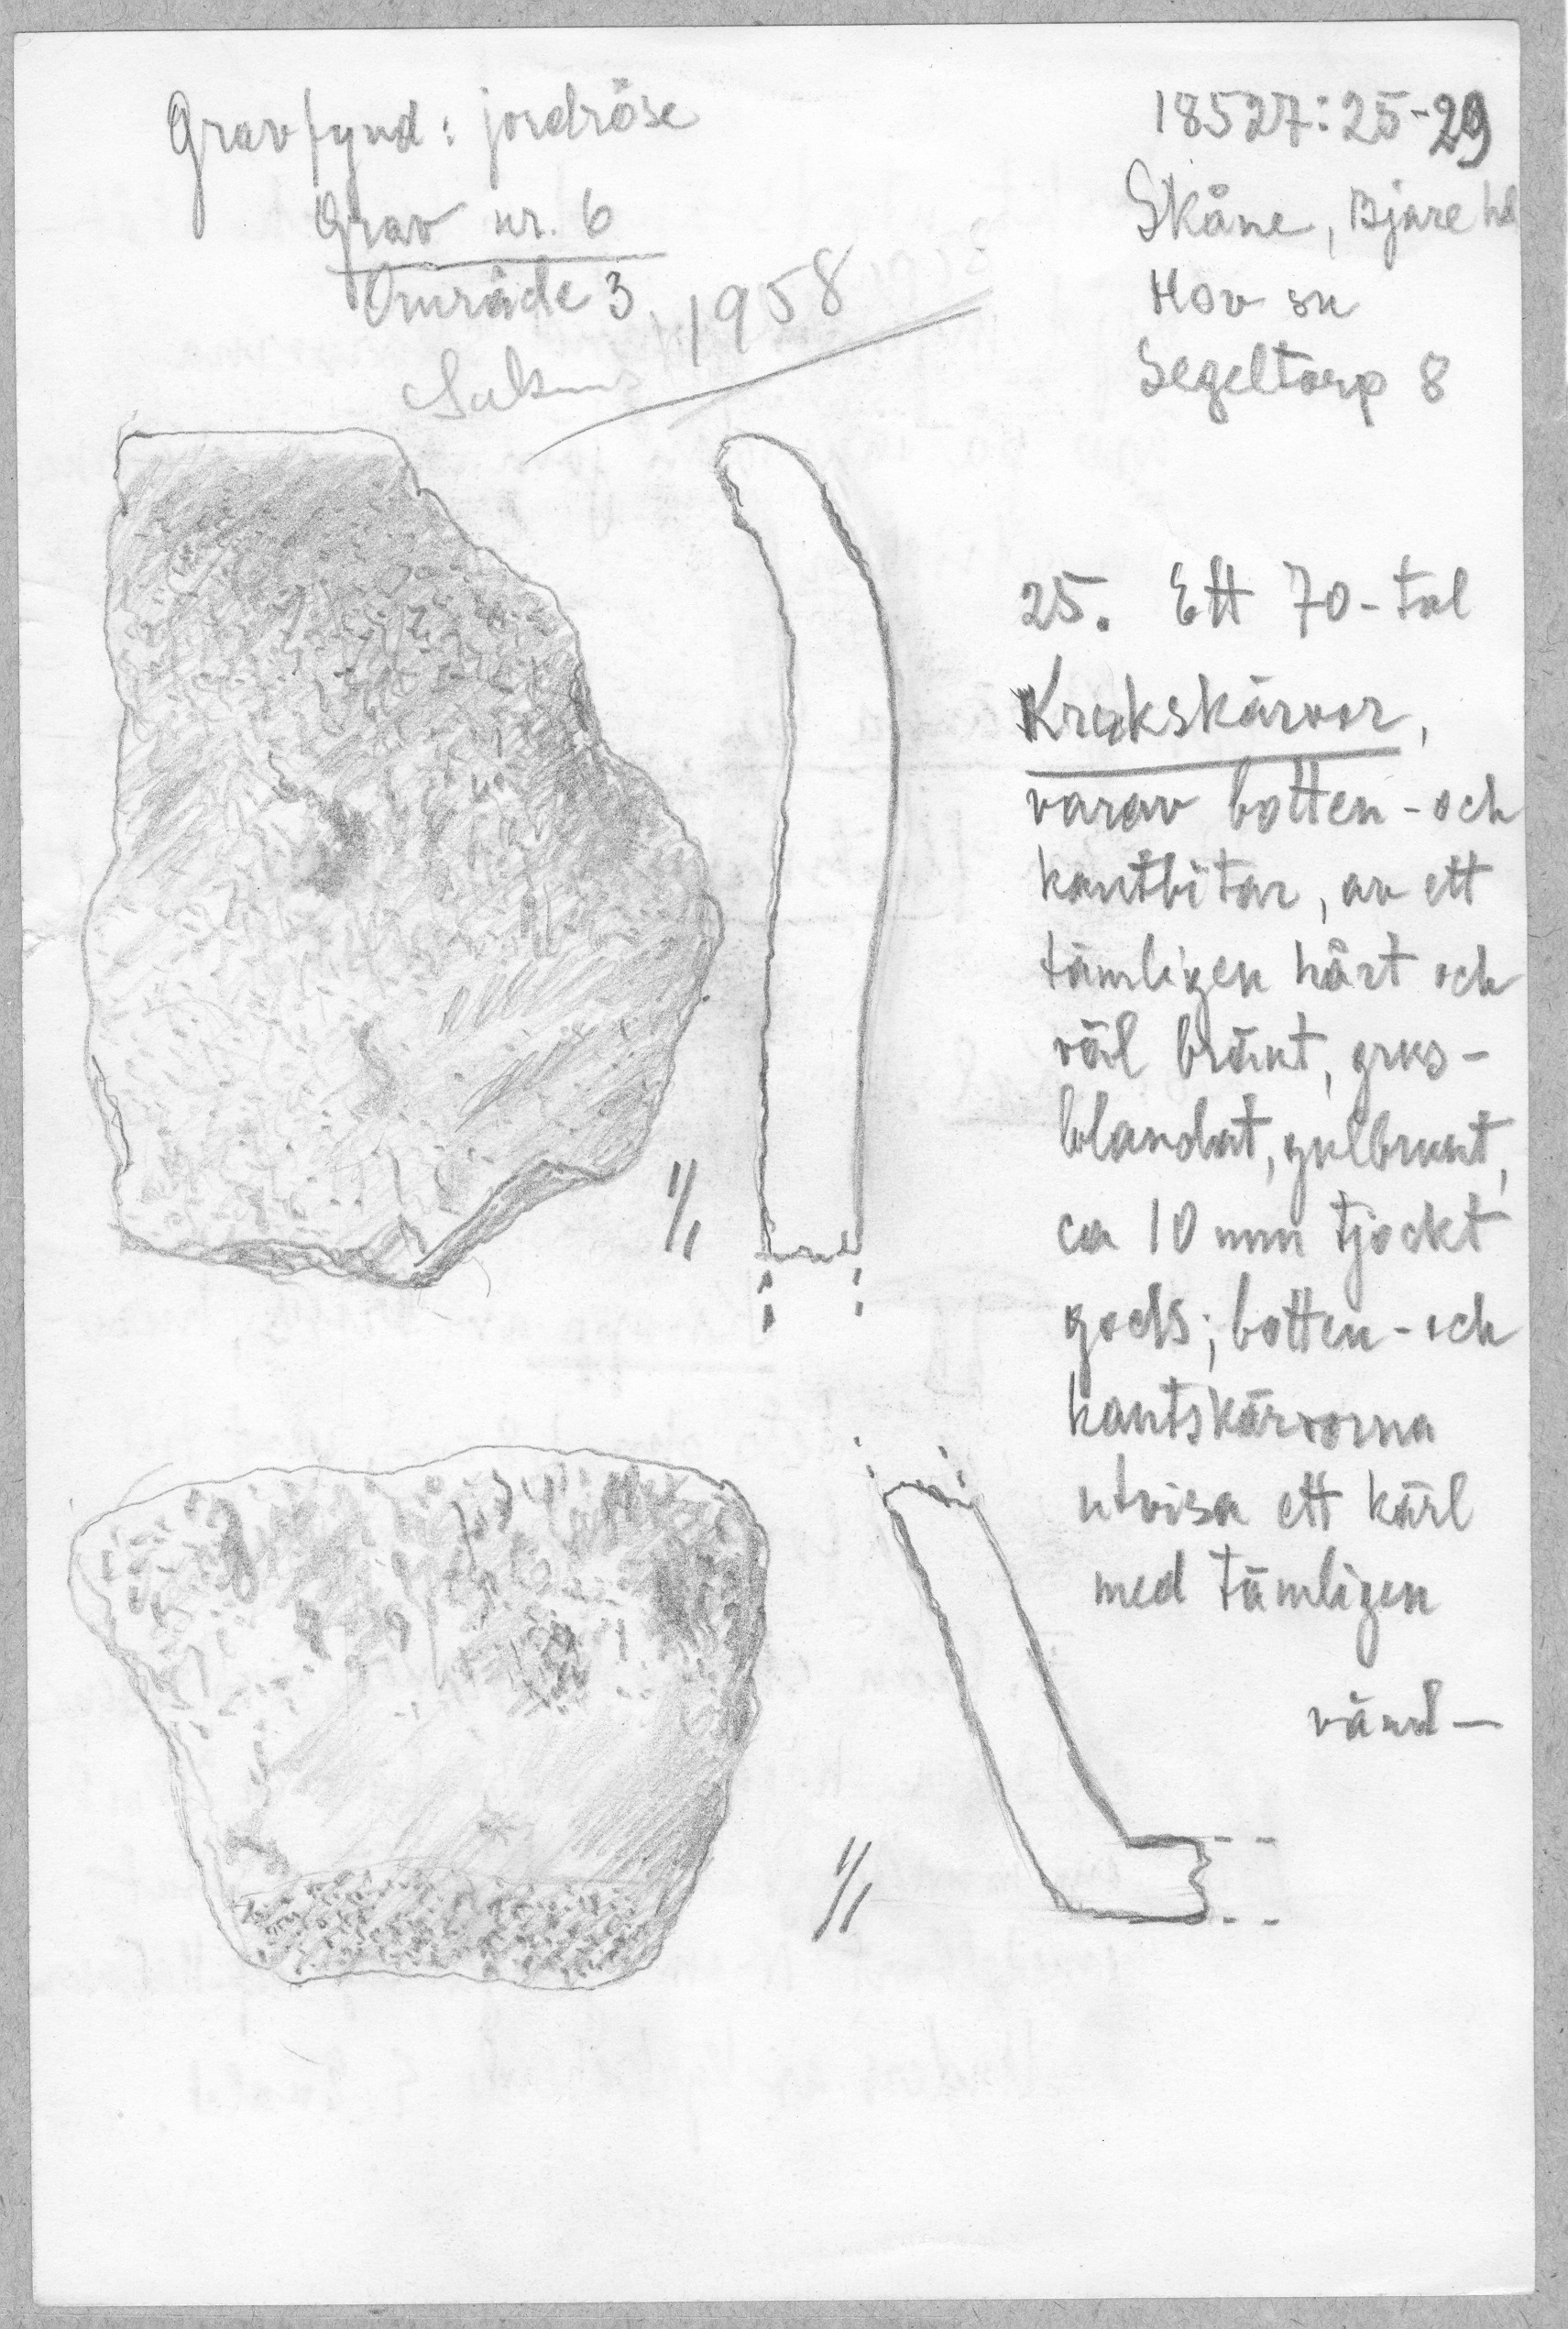 Gravfynd: jordröse
Grav nr. 6
Område 3, 1958
18527:25-29
Skåne, Bjäre hd
Hov sn
Segeltorp 8
25. Ett 70-tal
Krukskärvor,
varav botten- och
kantbitar, av ett
tämligen hårt och
väl bränt, grus-
blandat, gulbrunt,
ca 10 mm tjockt
gods; botten- och
kantskärvorna
utvisa ett kärl
med tämligen
vänd—
1/1
1/1